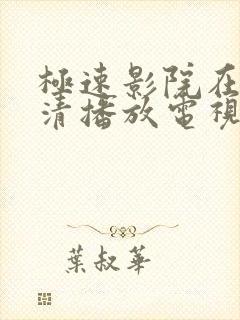 極速影院在
清播放電視
葉叔華